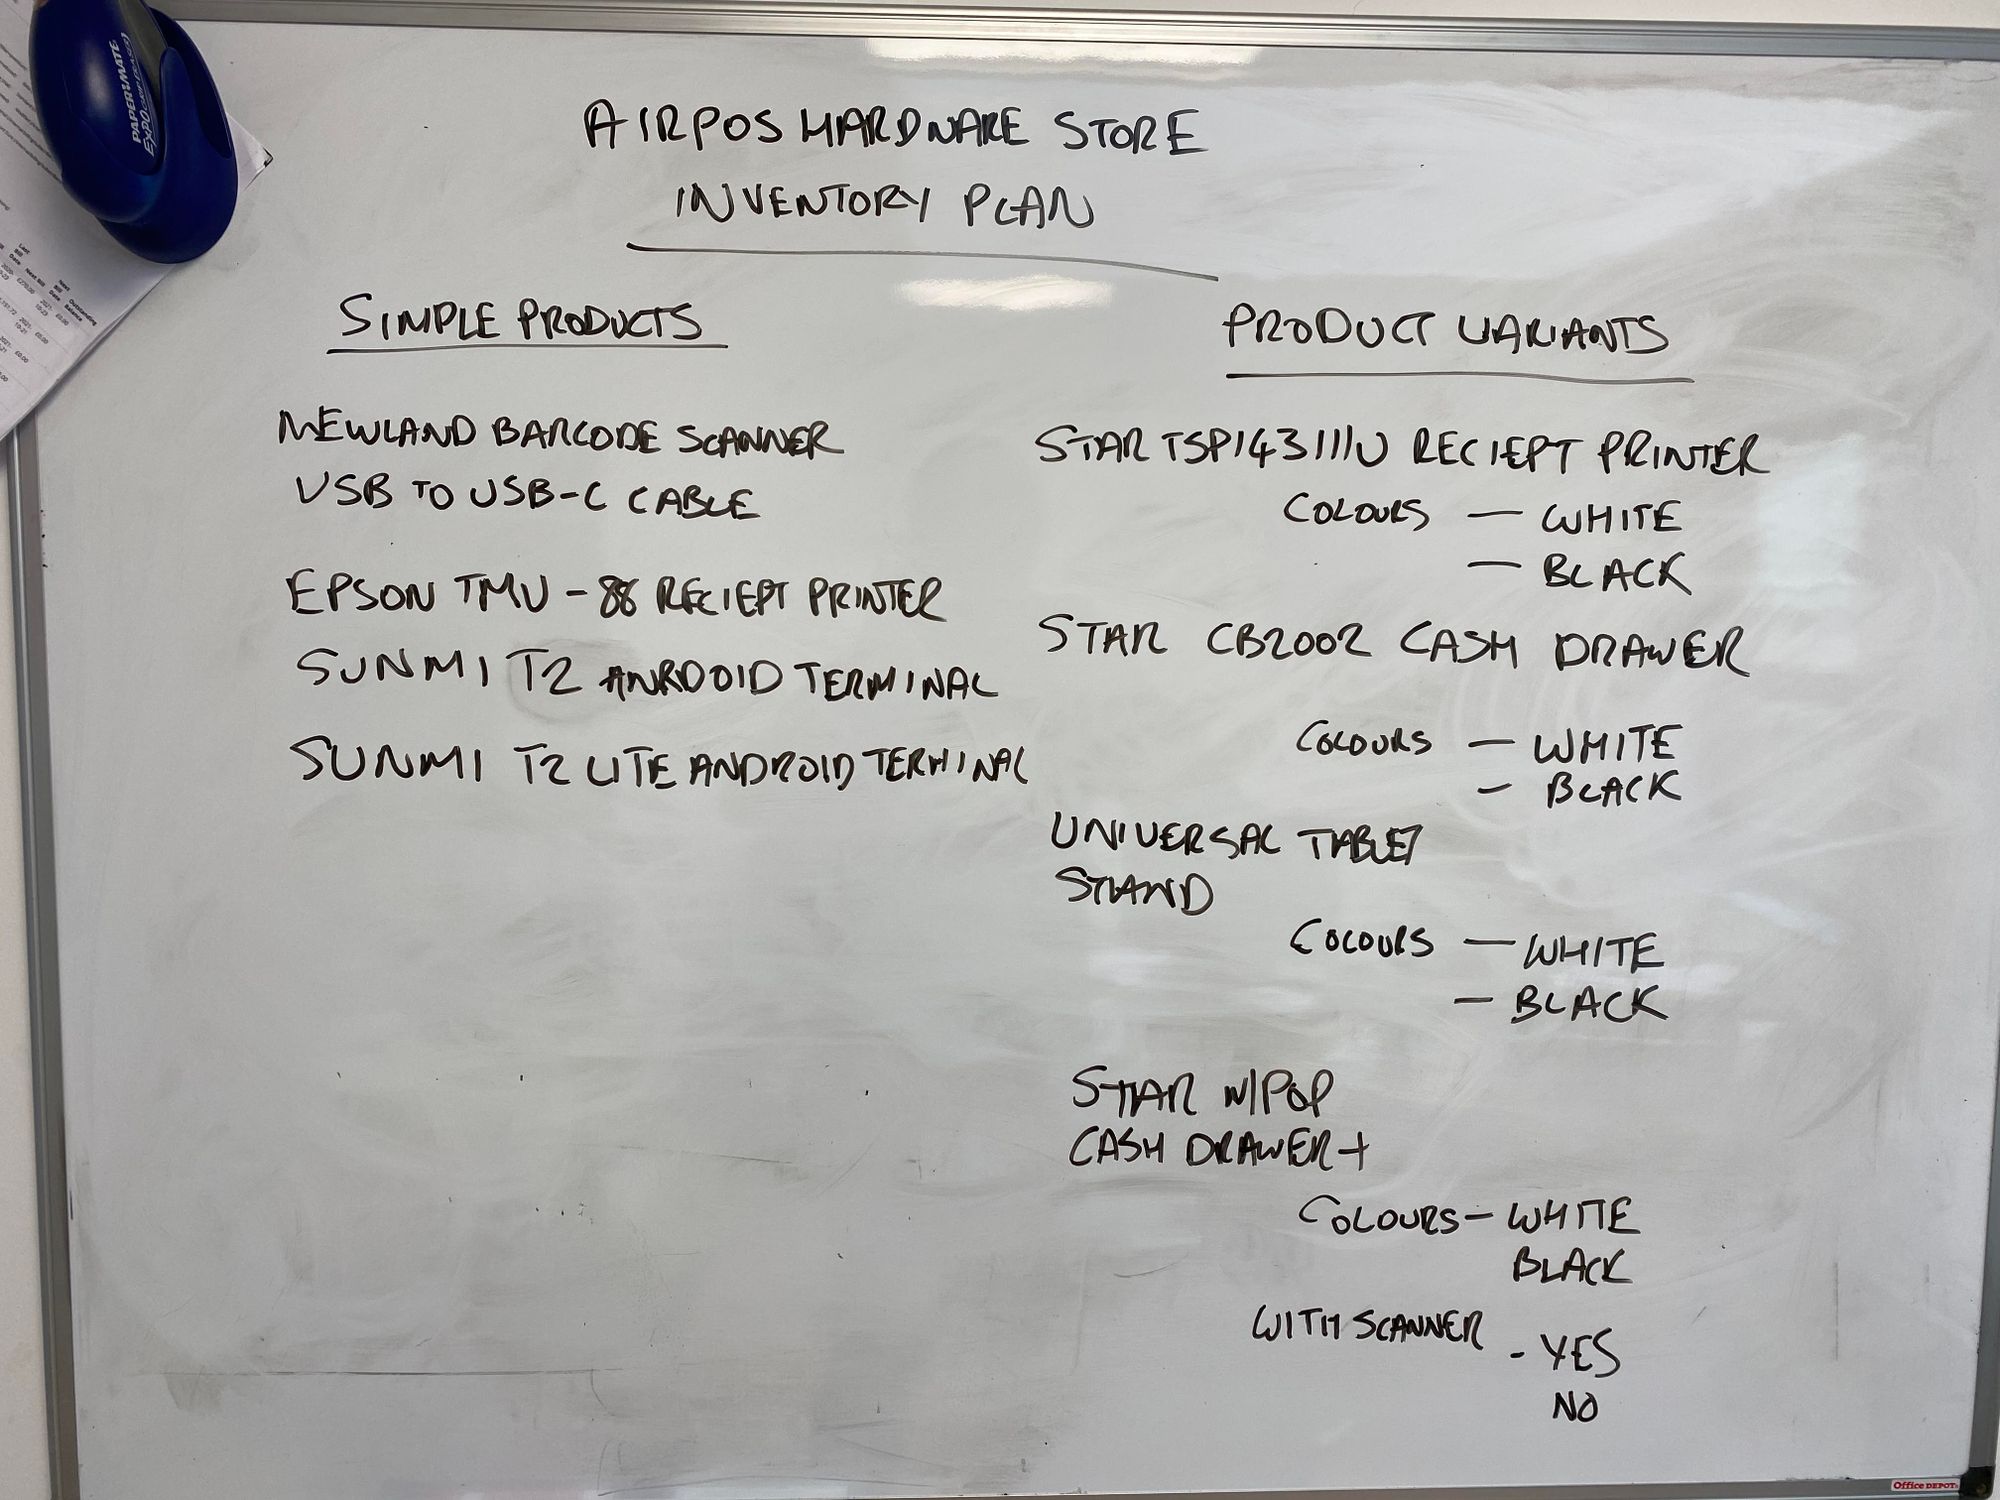 PAPER MATE
EXPO
AIRPOS HARDWARE STORE
INVENTORY PLAN
SIMPLE PRODUCTS
NEWLAND BARCODE SCANNER
USB TO USB-C CABLE
EPSON TMU-88 RECIEPT PRINTER
SUNMI T2 ANRDOID TERMINAL
SUNMI T2 LITE ANDROID TERMINAL
PRODUCT VARIANTS
STAR TSP143IIIU RECIEPT PRINTER
COLOURS — WHITE
— BLACK
STAR CB2002 CASH DRAWER
COLOURS — WHITE
- BLACK
UNIVERSAL TABLET
STAND
COLOURS — WHITE
— BLACK
STAR M/POP
CASH DRAWER+
COLOURS - WHITE
BLACK
WITH SCANNER - YES
NO
Office DEPOT